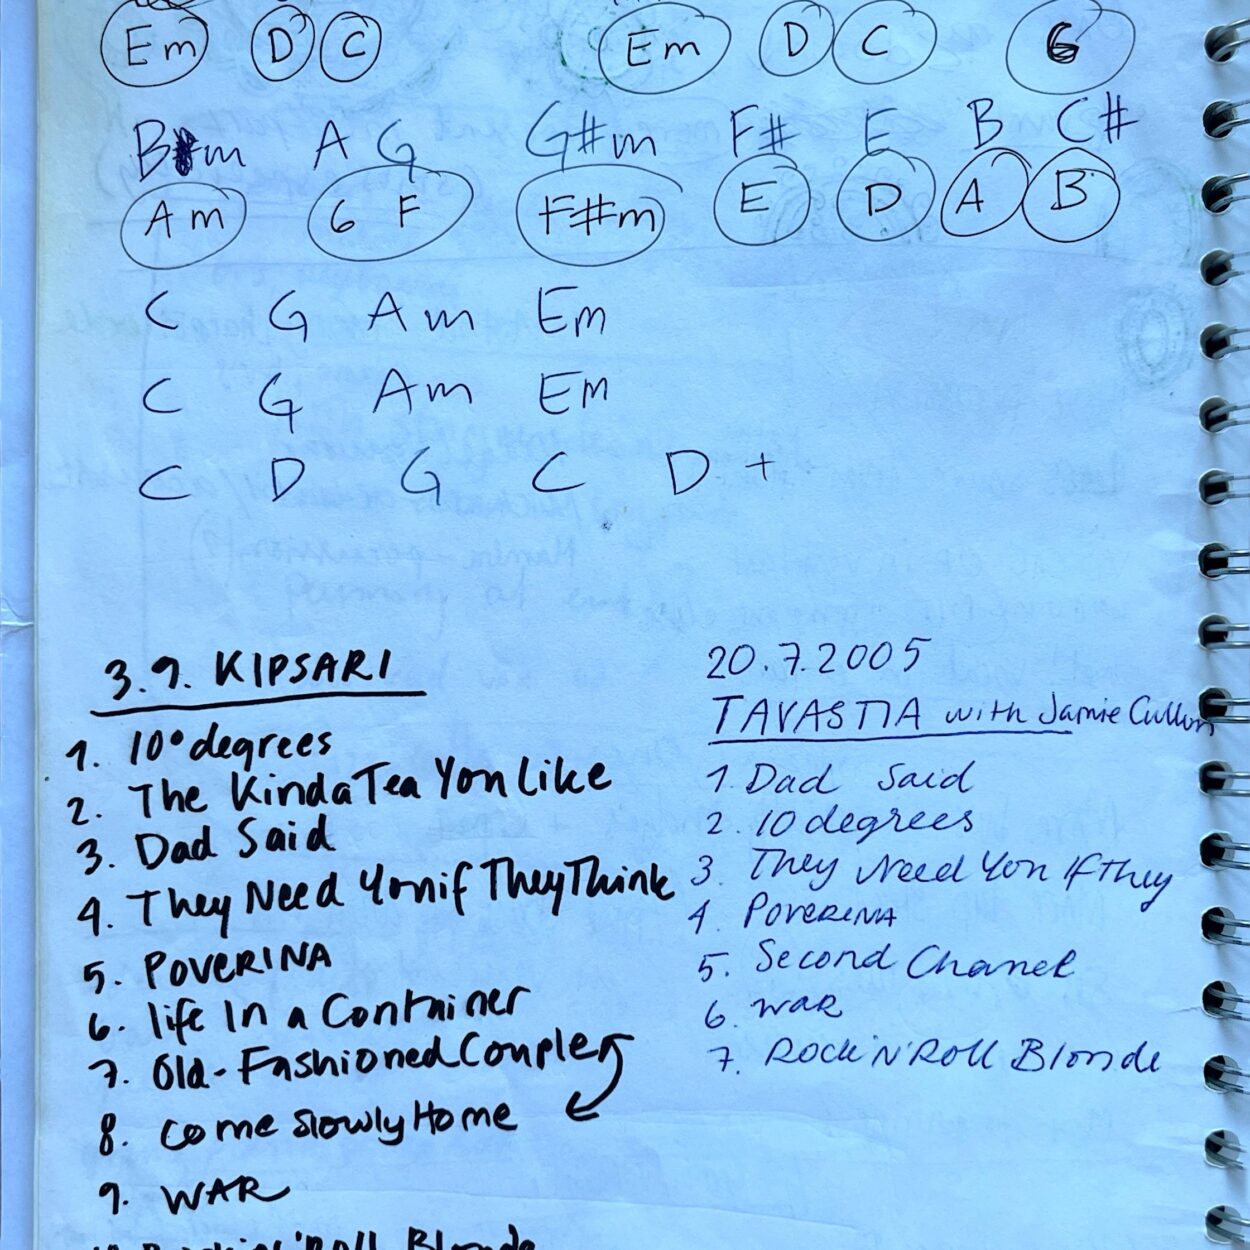 Em D C Em D C G
Bm A G G#m F# E B C#
Am G F F#m E D A B
C G Am Em
C G Am Em
C D G C D +
3.9. KIPSARI
1. 10° degrees
2. The Kinda Tea You Like
3. Dad Said
4. They Need You if They Think
5. POVERINA
6. life In a Container
7. Old-Fashioned Couple
8. come slowly Home
9. WAR
Rock'n'Roll Blonde
20.7.2005
TAVASTIA with Jamie Cullum
1. Dad Said
2. 10 degrees
3. They Need You If they
4. POVERINA
5. Second Chanel
6. WAR
7. Rock'N'Roll Blonde